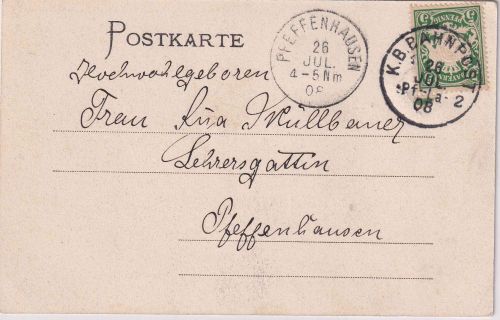 POSTKARTE
PFEFFENHAUSEN
26
JUL.
4-5 Nm
08
K.B. BAHNPOST
26
JUL
08
2
5
PFENNIG
BAYERN
Hochwohlgeboren
Frau
Lehrersgattin
Pfeffenhausen